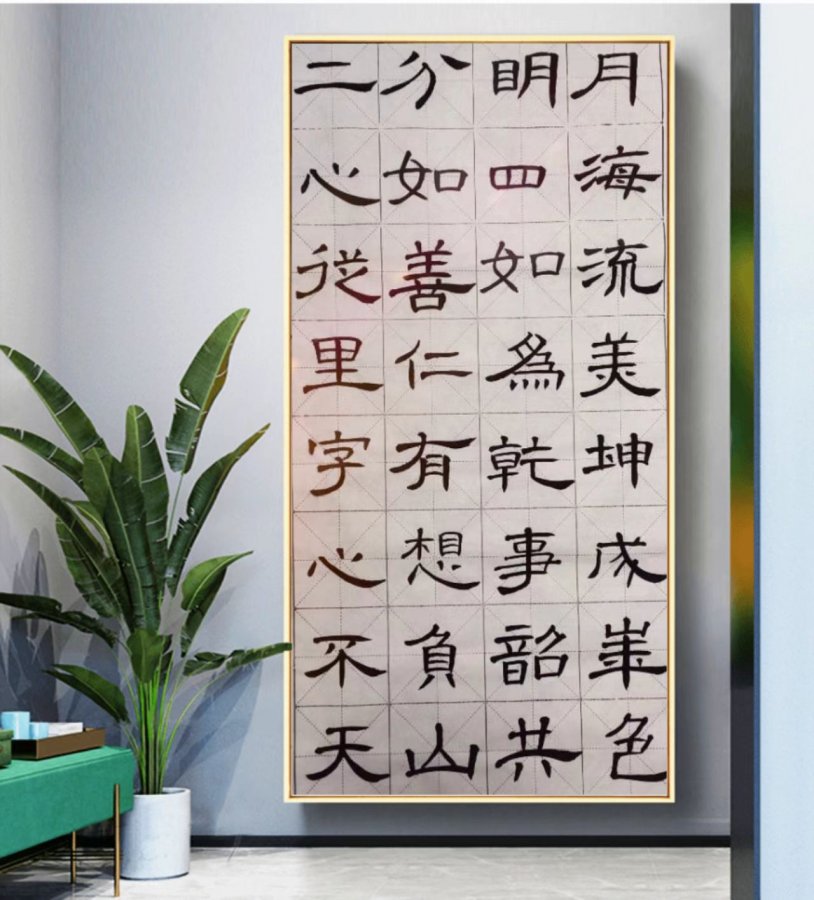 月海流美坤成色
明四如為乾事韶共
分如善仁有想負山
二心從里字心不天